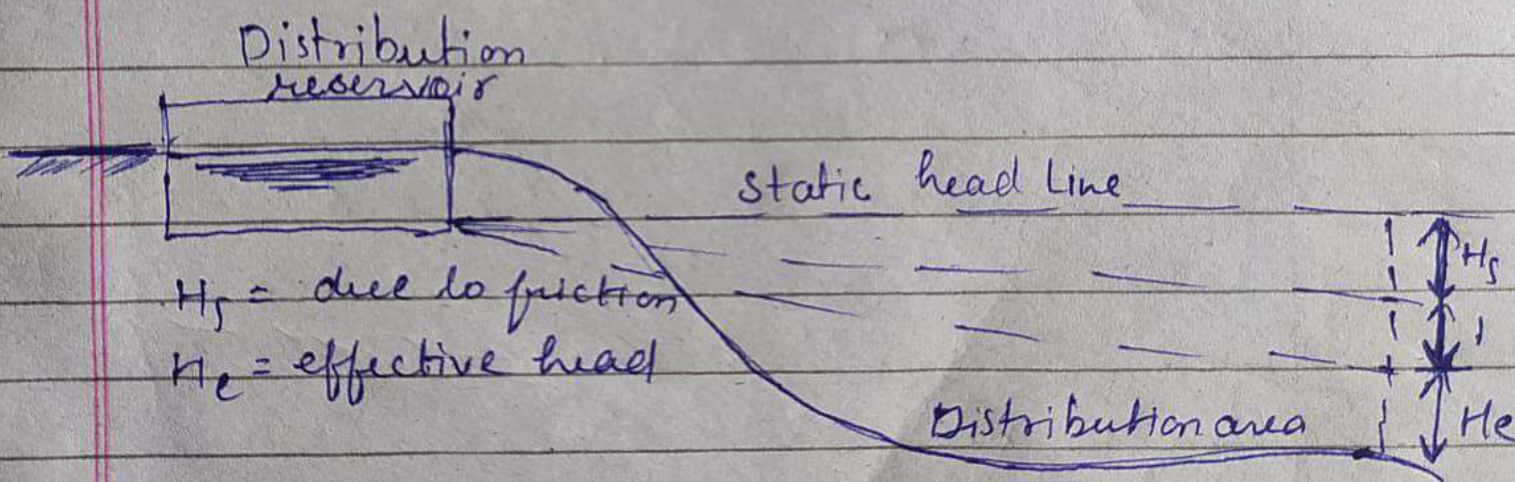 Distribution
reservoir
static head Line
Hf
Hf = due to friction
He = effective head
Distribution area
He